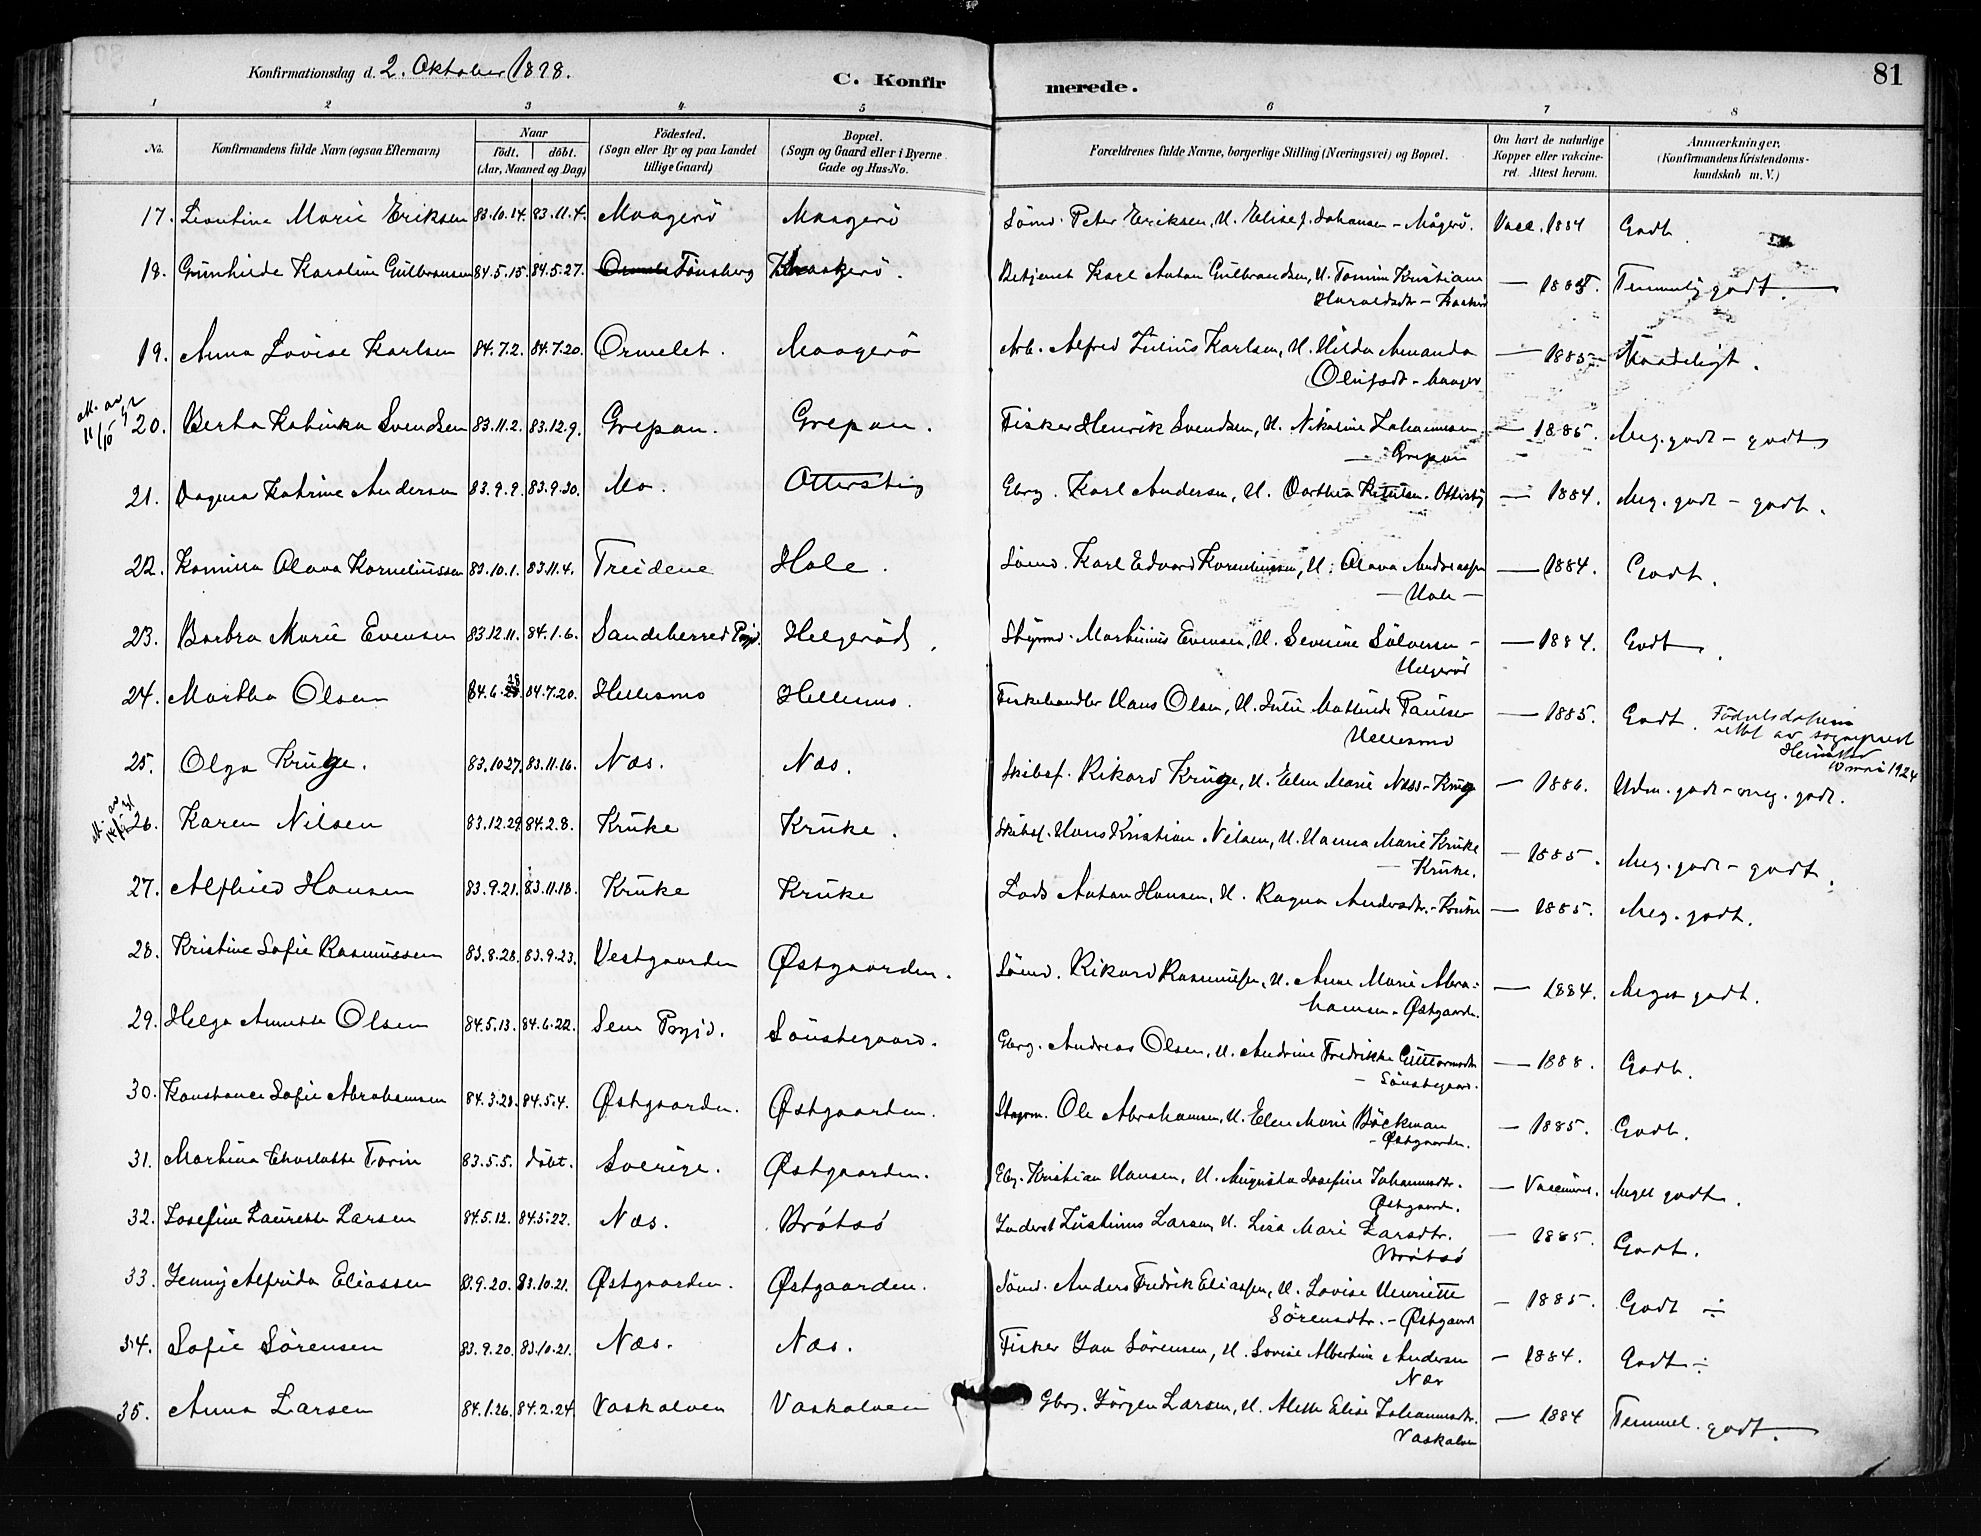 81
Konfirmationsdag d. 2. Oktober 1898.
C. Konfirmerede.
1 2 3 4 5 6 7 8
No. | Konfirmandens fulde Navn (ogsaa Efternavn) | Naar født. døbt. (Aar, Maaned og Dag) | Fødested. (Sogn eller By og paa Landet tillige Gaard) | Bopæl. (Sogn og Gaard eller i Byerne Gade og Hus-No. | Forældrenes fulde Navne, borgerlige Stilling (Næringsvei) og Bopæl. | Om havt de naturlige Kopper eller vakcineret. Attest herom. | Anmærkninger. (Konfirmandens Kristendomskundskab m. V.)
17. Leontine Marie Eriksen 83.10.14. 83.11.4. Maagerö Maagerö Sömd. Peter Eriksen, H. Elise f. Johansen - Mågerö. Vacc. 1884 Godt.
18. Gunhilde Karoline Gulbransen 84.5.15. 84.5.27. Tönsberg Kaakerö. Betjent Karl Anton Gulbrandsen, H. Tomine Kristiane
Haraldsdt - Kaakerö — Temmelig godt.
19. Anna Lovise Karlsen 84.7.2. 84.7.20. Ormelet. Maagerö Arb. Alfred Julius Karlsen, H. Hilda Amanda
Olufsdt - Maagerö — 1885 Maadeligt.
att. av 11/10
20. Berta Katinka Svendsen 83.11.2. 83.12.9. Grepan. Grepan. Fisker Henrik Svendsen, H. Nikoline Johannesen
— Grepan — 1885. Meg. godt - godt
21. Dagma Katrine Andersen 83.9.9. 83.9.30. Mo. Otterstig Gbrg. Karl Andersen, H. Dorthea Ottistig — 1884. Meg. godt - godt.
22. Kamilla Olava Korneliussen 83.10.1. 83.11.4. Treidene Hole. Sömd. Karl Edvard Korneliussen, H. Olava Andreassen
— Hole — — 1884. Godt.
23. Barbra Marie Evensen 83.12.11. 84.1.6. Sandeherred Prgj. Helgeröd. Styrmd. Martinius Evensen, H. Severine Sölversen -
Helgeröd — 1884. Godt.
24. Martha Olsen 84.6.28 84.7.20. Hellesmo Hellesmo. Fiskehandler Hans Olsen, H. Julie Mathilde Paulsen
Hellesmo — 1885. Godt. Födselsdatoen
rettet av sogneprest
10 mai 1924
25. Olga Kruge. 83.10.27. 83.11.16. Næs. Næs. Skibsf. Rikard Kruge, H. Elen Marie Næss - Kruge — 1886. Udm. godt - meg. godt.
26. Karen Nilsen 83.12.29. 84.2.8. Kruke Kruke. Skibsf. Hans Kristian Nilsen, H. Hanna Marie Kruke
— Kruke. — 1885. Meg. godt - godt.
27. Alfhild Hansen 83.9.21. 83.11.18. Kruke Kruke Lods Anton Hansen, H. Ragna Andersdt. - Kruke — 1885. Meg. godt.
28. Kristine Sofie Rasmussen 83.8.28. 83.9.23. Vestgaarden Østgaarden. Sömd. Rikard Rasmussen, H. Anne Marie Abra-
hamsen - Østgaarden. — 1884. Meget godt.
29. Helga Annette Olsen 84.5.13. 84.6.22. Sem Prgj. Sönstegaard. Gbrg. Andreas Olsen, H. Andrine Fredrikke Guttormsdt
— Sönstegaard. — 1888. Godt.
30. Konstance Sofie Abrahamsen 84.3.28. 84.5.4. Østgaarden. Østgaarden. Styrm. Ole Abrahamsen, H. Elen Marie Böckman
- Østgaarden. — 1885. Godt.
31. Martina Charlotte Torin 83.5.5. döbt. Sverige. Østgaarden. Gbg. Kristian Hansen, H. Augusta Josefine Johannesdtr.
Østgaard. — Vaccineret. Meget godt.
32. Josefine Laurette Larsen 84.5.12. 84.5.22. Næs. Brötsö Inderst Justinus Larsen, H. Lisa Mari Larsdtr.
Brötsö — 1885. Godt.
33. Jenny Alfrida Eliassen 83.9.20. 83.10.21. Østgaarden. Østgaarden. Sömd. Anders Fredrik Eliassen, H. Lovise Henriette
Sörensdtr. - Østgaard — 1885. Godt ÷
34. Sofie Sörensen 83.9.20. 83.10.21. Næs. Næs. Fisker Jan Sörensen, H. Lovise Albertine Andersen
Næs — 1884. Godt ÷
35. Anna Larsen 84.1.26. 84.2.24 Vaskalven Vaskalven Gbrg. Jörgen Larsen, H. Alette Elise Johannesdtr.
Vaskalven — 1884 Temmel. godt.